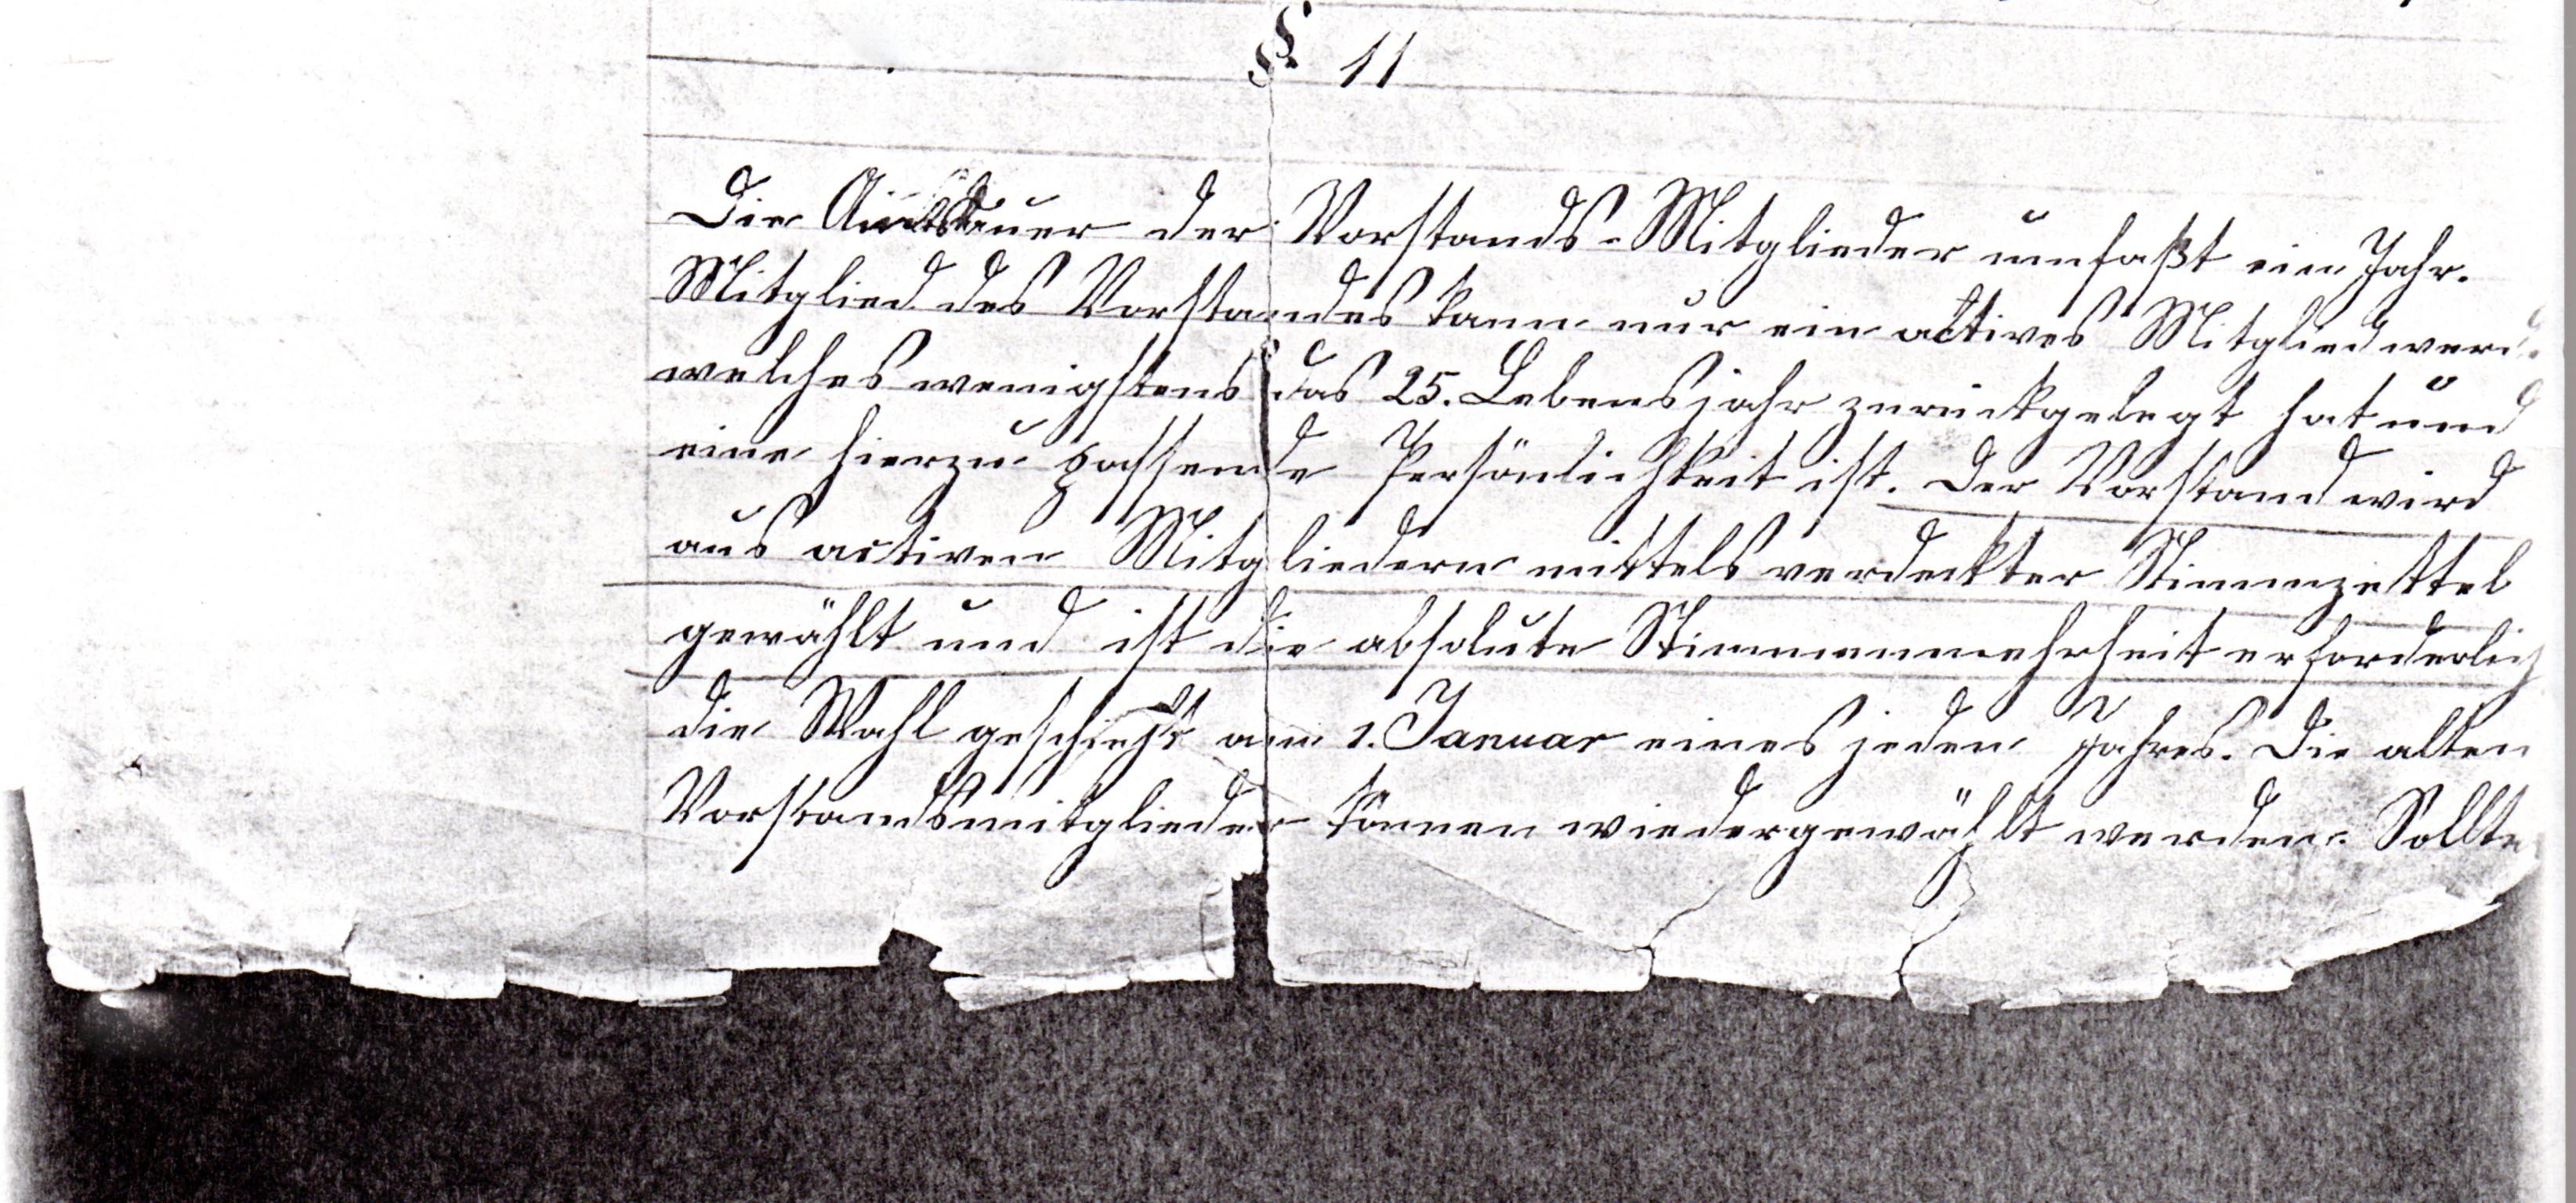 § 11
Die Amtsdauer der Vorstands-Mitglieder umfaßt ein Jahr.
Mitglied des Vorstandes kann nur ein actives Mitglied werd
welches wenigstens das 25. Lebensjahr zurückgelegt hat und
eine hierzu passende Persönlichkeit ist. Der Vorstand wird
aus activen Mitgliedern mittels verdeckter Stimmzettel
gewählt und ist die absolute Stimmenmehrheit erforderlich
die Wahl geschieht am 1. Januar eines jeden Jahres. Die alten
Vorstandsmitglieder können wiedergewählt werden. Sollte